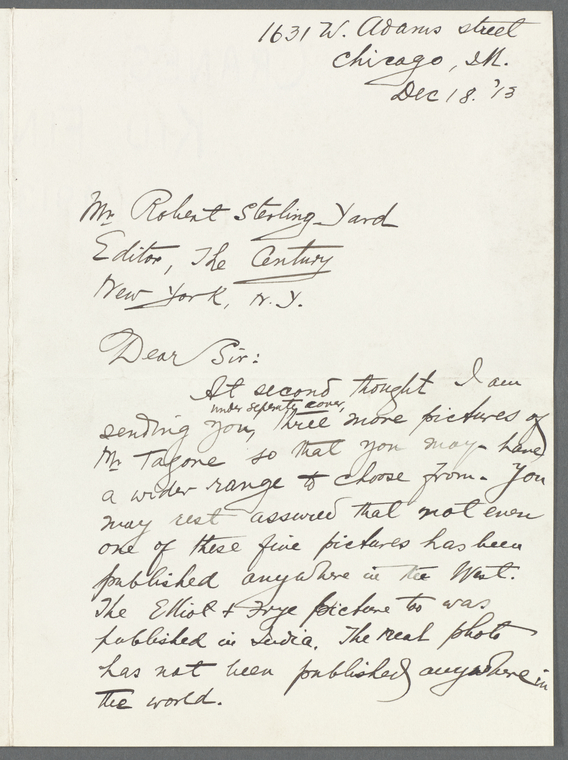 1631 W. Adams street
Chicago, Ill.
Dec 18. '13
Mr Robert Sterling Yard
Editor, The Century
New York, N.Y.
Dear Sir:
At second thought I am
under seperate cover,
sending you, three more pictures of
Mr Tagore so that you may have
a wider range to choose from. You
may rest assured that not even
one of these five pictures has been
published anywhere in the West.
The Elliot & Frye picture too was
published in India. The real photo
has not been published anywhere in
the world.